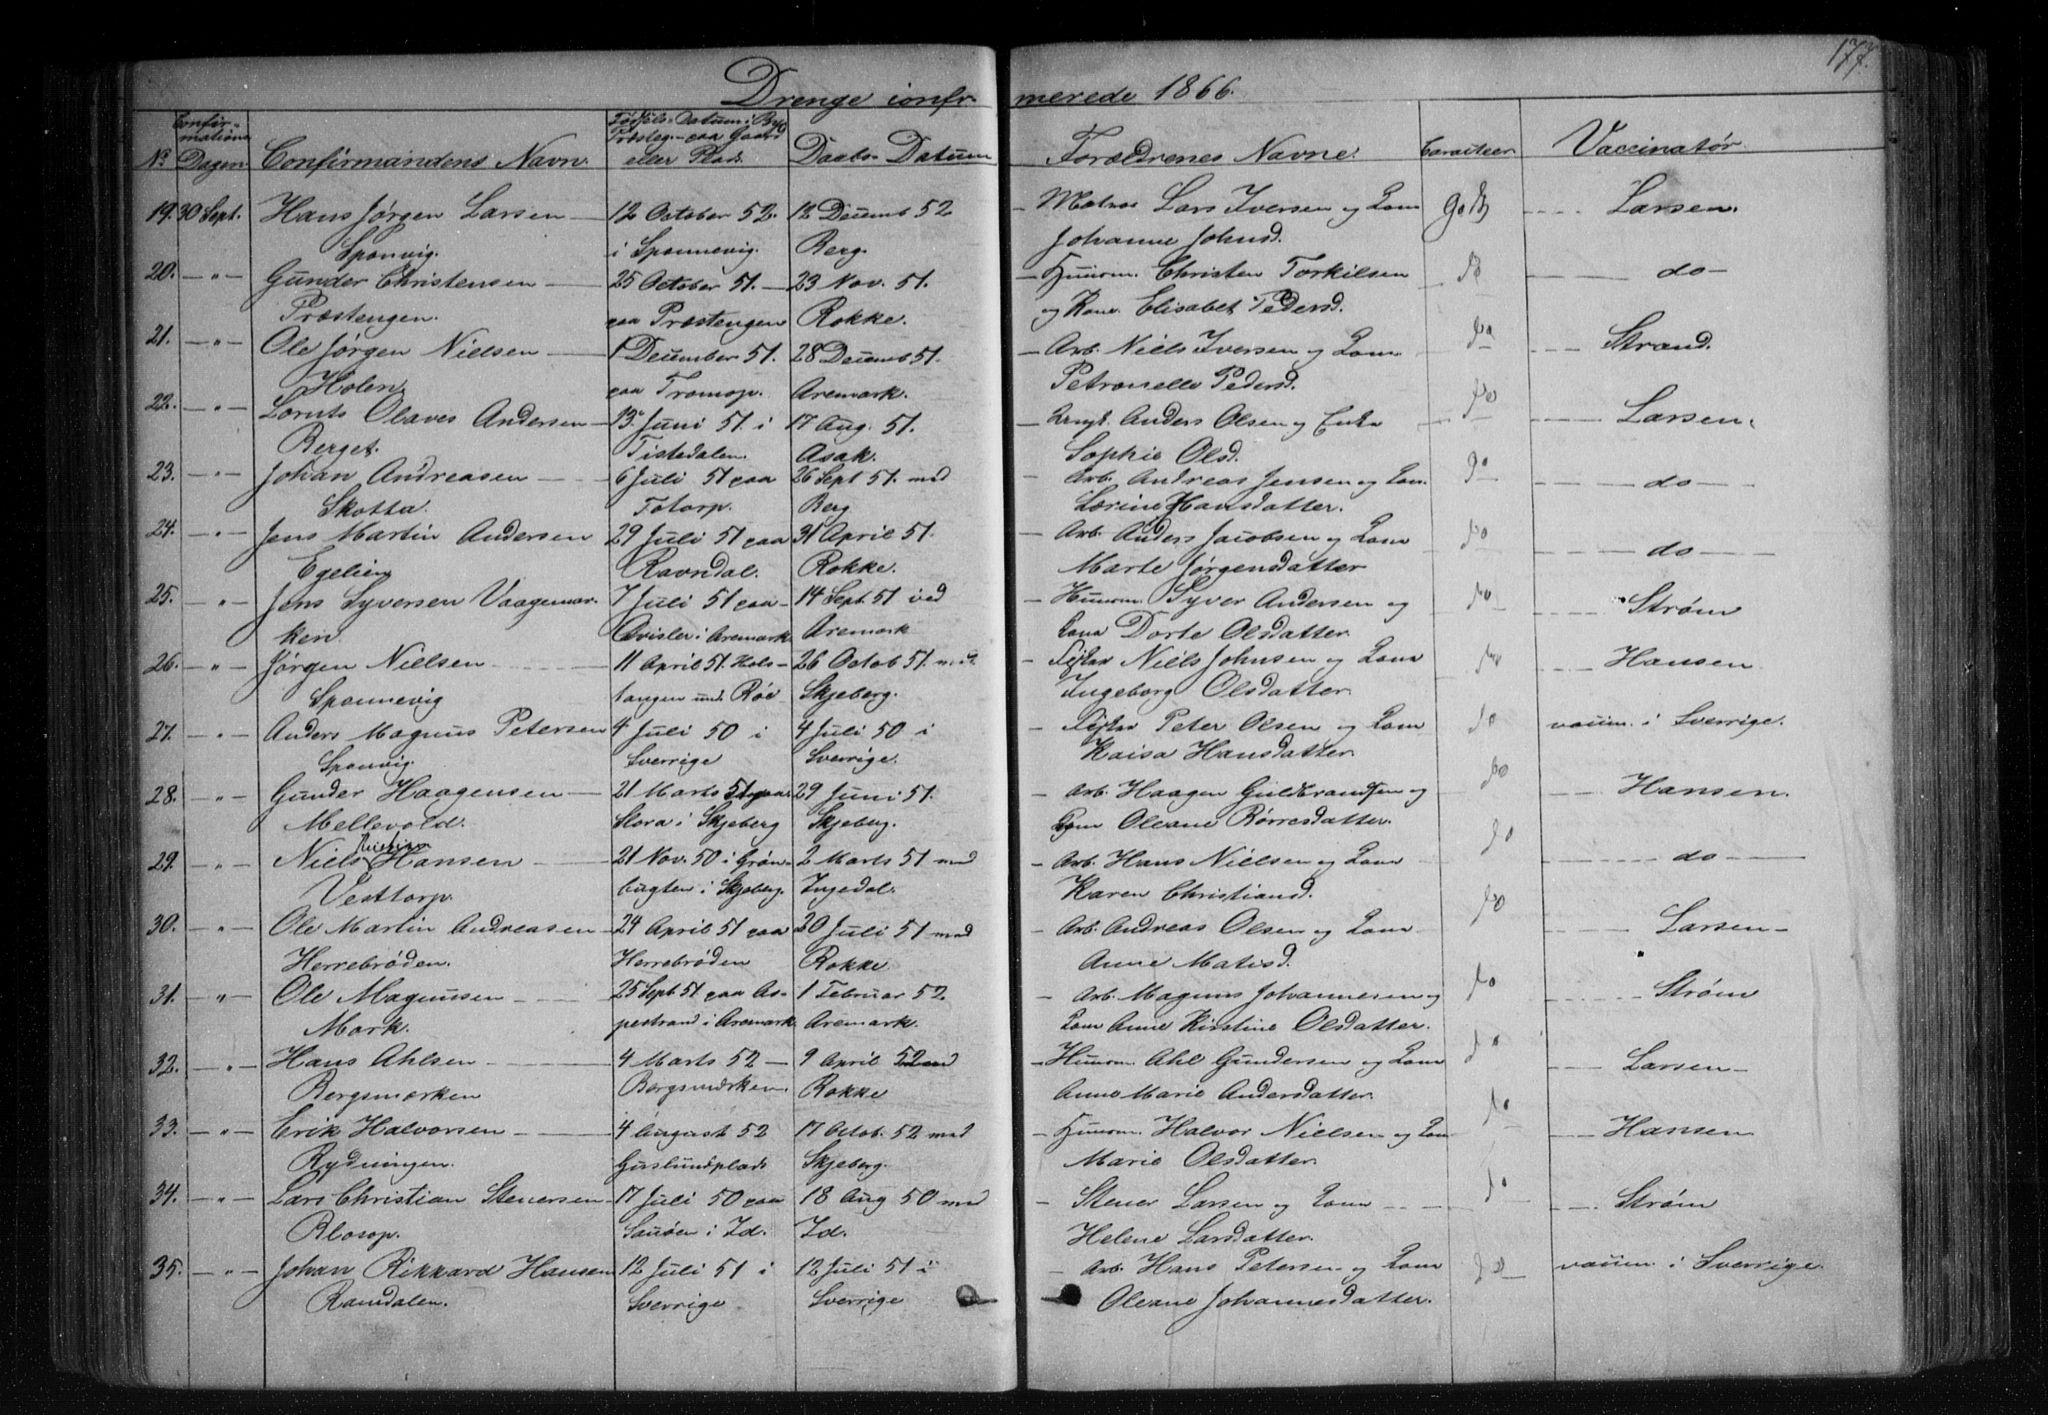 177.
Drenge confirmerede 1866.
No Confirmations Dagen Confirmandens Navn. Fødsels-Datum i By, Præsteg. paa Gaard eller Plads Daabs-Datum Forældrenes Navne. Caracteer Vaccinatør
19. 30 Sept. Hans Jørgen Larsen — 12 October 52. 12 Decemb 52 — Matros Lars Iversen og Kone godt — Larsen.
Sponvig. i Sponnevig. Berg. Johanne Johnsd.
20. —"— Gunder Christensen — 25 October 51. — 23 Nov. 51. — Huusm. Christen Torkilsen do — do —
Præstengen. paa Præstengen Rokke. og Kone Elisabet Pedersd.
21. —"— Ole Jørgen Nielsen — 1 December 51. 28 Decemb 51. — Arb. Niels Iversen og Kone do — Strand.
Holen paa Tromop. Aremark. Petronelle Pedersd.
22. —"— Olaves Andersen — 13 Juni 51. i 17 Aug. 51. — Anders Olsen og Enke do — Larsen.
Berget. Tistedalen. Asak. Sophie Olsd.
23. —"— Johan Andreasen — 6 Juli 51 paa 26 Sept 51. ved — Arb. Andreas Jensen og Kone do — do —
Skotta. Totorp. Berg Lorine Hansdatter.
24. —"— Jens Martin Andersen 29 Juli 51 paa 31 April 51. — Arb. Anders Jacobsen og Kone do — do —
Egelien Ravndal. Rokke. Marte Jørgensdatter
25. —"— Jens Syversen Vaagemar- 7 Juli 51 paa 14 Sept. 51 ved — Huusm. Syver Andersen og do — Strøm
ken. i Aremark Aremark Kone Dorte Olsdatter.
26. —"— Jørgen Nielsen — 11 April 51. Hols- 26 Octob 51. ved — Niels Johnsen og Kone do — Hansen
Sponnevig tangen und. Røe Skjeberg. Ingeborg Olsdatter.
27. —"— Anders Magnus Petersen 4 Juli 50 i 4 Juli 50 i — Peter Olsen og Kone do vaccin. i Sverrige.
Sponvig. Sverrige Sverrige. Kaisa Hansdatter.
28. —"— Gunder Haagensen — 21 Marts 51 paa 29 Juni 51. — Arb. Haagen Guldbrandsen og do — Hansen.
Mellevold. Stora i Skjeberg Skjeberg. Kone Oleane Børresdatter.
29. —"— Niels Hansen — 21 Nov. 50 i Grøn- 2 Marts 51 ved — Arb. Hans Nielsen og Kone do — do —
Vesttorp. bugten i Skjeberg. Ingedal. Karen Christiansd.
30. —"— Ole Martin Andreasen — 24 April 51 paa 20 Juli 51 ved — Arb. Andreas Olsen og Kone do — Larsen —
Herrebrøden. Herrebrøden Rokke. Anne Matisd.
31. —"— Ole Magnusen — 25 Sept 51 paa As- 1 Februar 52. — Arb. Magnus Johannesen og do — Strøm
Mork. pestrand i Aremark. Aremark. Kone Anne Kirstine Olsdatter.
32. —"— Hans Ahlsen — 4 Marts 52 — 9 April 52 ved — Huusm. Ahl Gundersen og Kone do — Larsen —
Bergsmarken Borgsmarken. Rokke Anne Marie Andersdatter.
33. —"— Erik Halvorsen — 4 August 52 17 Octob. 52 ved — Huusm. Halvor Nielsen og Kone do — Hansen
Rydningen. Guslundplads Skjeberg. Marie Olsdatter.
34. —"— Lars Christian Stenersen 17 Juli 50 paa 18 Aug 50 ved — Stener Larsen og Kone do — Strøm
Blosop. Sauøen i Id. Id. Helene Larsdatter.
35. —"— Johan Rikkard Hansen 12 Juli 51 i 12 Juli 51 i — Arb. Hans Petersen og Kone do vaccin i Sverrige
Ramdalen. Sverrige Sverrige Oleane Johannesdatter.